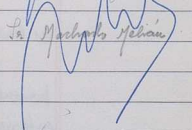 La Machado Melián